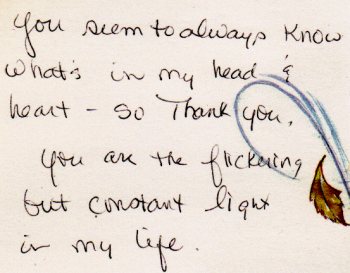 you seem to always know
what's in my head &
heart - so Thank you.
you are the flickering
but constant light
in my life.